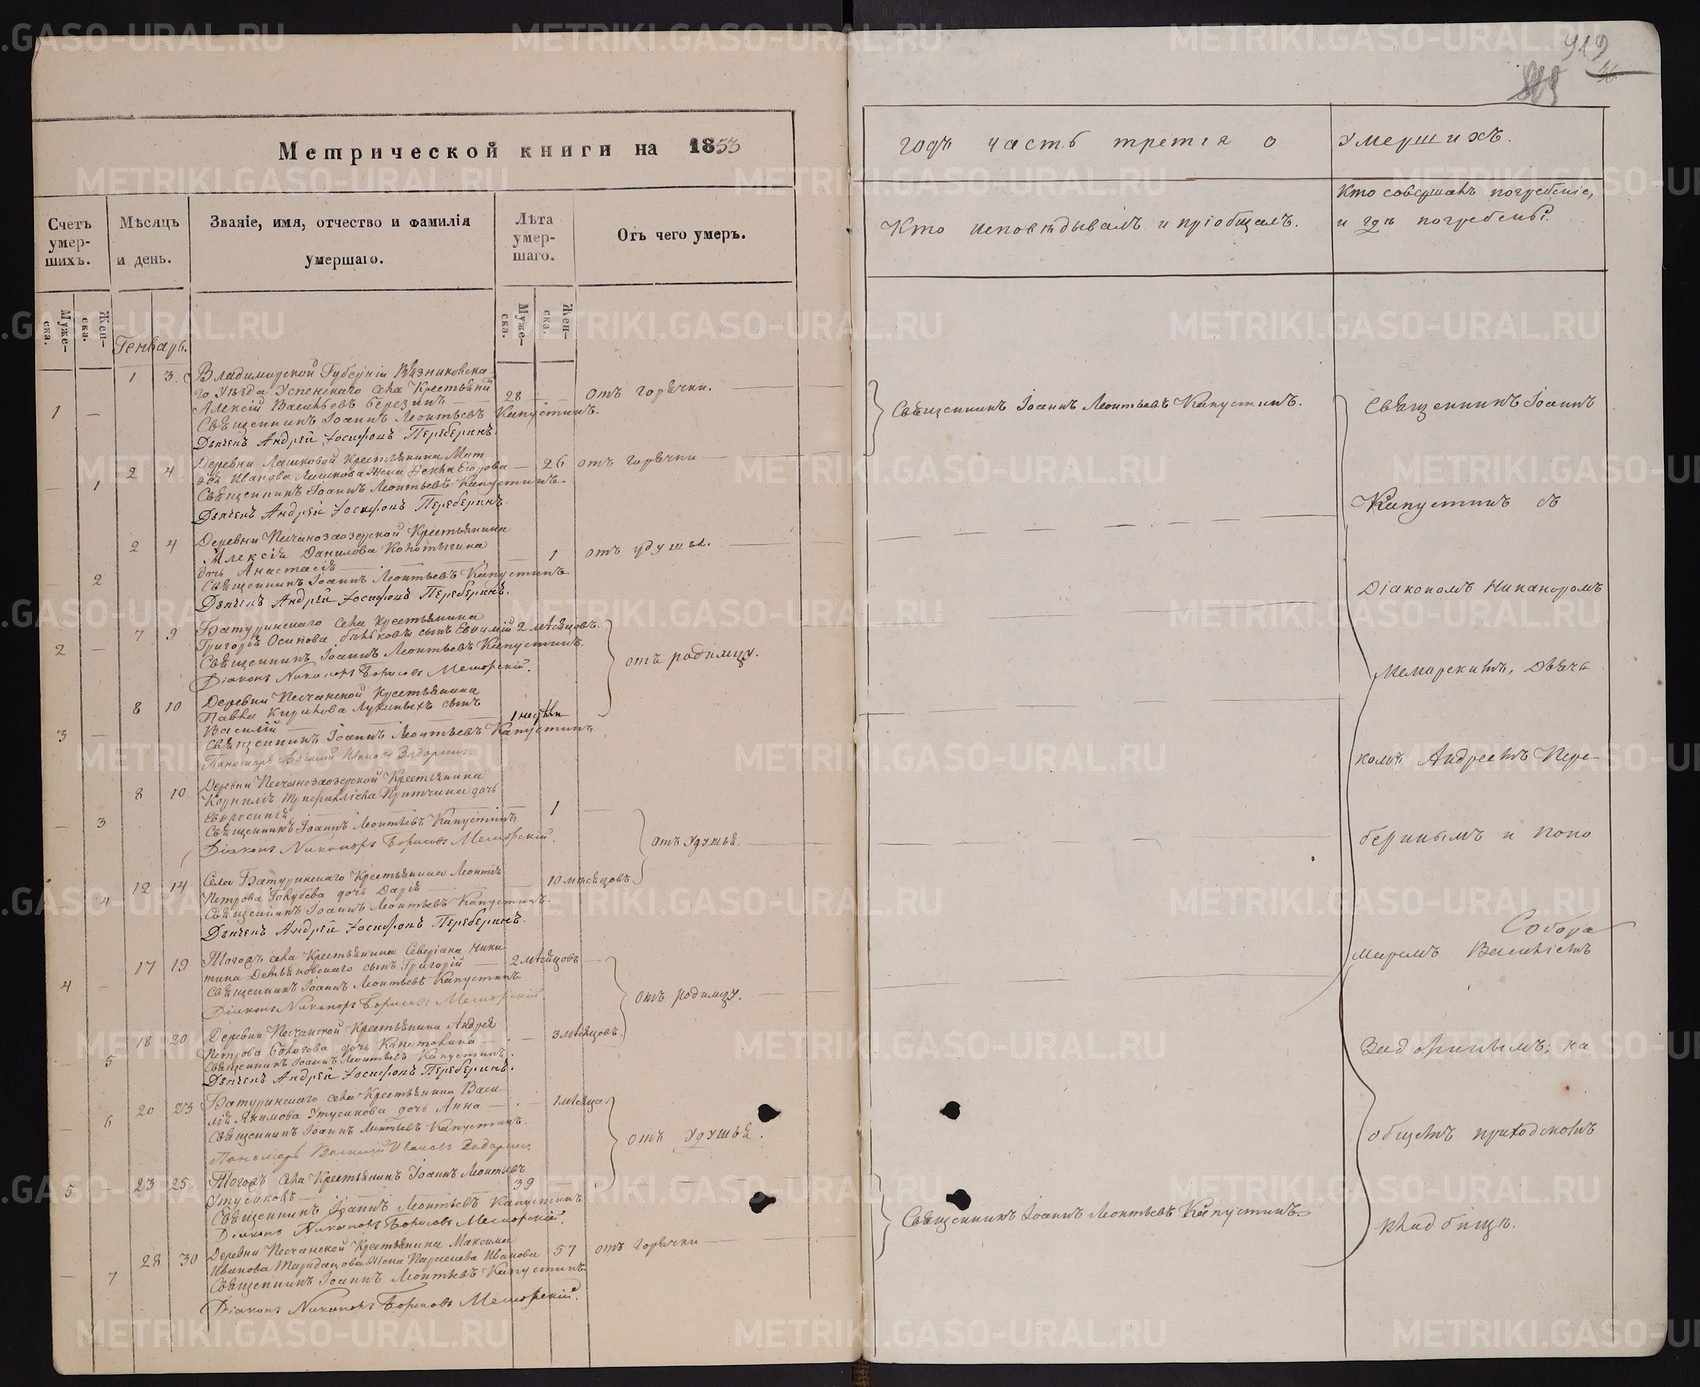 919
Метрической книги на 1853
годъ часть третія о умершихъ.
Счетъ умер-шихъ.
Мѣсяцъ и день.
Званіе, имя, отчество и фамилія умершаго.
Лѣта умер-шаго.
Отъ чего умеръ.
Кто исповѣдывалъ и пріобщалъ.
Кто совершалъ погребеніе,
и гдѣ погребены.
Муже-ска.
Жен-ска.
Муже-ска.
Жен-ска.
Генварь.
1 — 1 3. Владимирской Губерніи Вязниковска-
го Уѣзда Успенскаго села Крестьянинъ
Алексій Васильевъ Березинъ — 28 — отъ горячки.
Священникъ Іоаннъ Леонтьевъ Капустинъ.
Дьячекъ Андрей Іосифовъ Переберинъ.
— 1 2 4 Деревни Лашковой Крестьянина Мат
Иванова Лашкова Жена Егорова — 26 отъ горячки
Священникъ Іоаннъ Леонтьевъ Капустинъ.
Дьячекъ Андрей Іосифовъ Переберинъ.
— 2 2 4 Деревни Песчанозаозерской Крестьянина
Алексія Данилова Копотыгина
дочь Анастасія — 1 отъ удушья.
Священникъ Іоаннъ Леонтьевъ Капустинъ
Дьячекъ Андрей Іосифовъ Переберинъ.
2 — 7 9 Батуринскаго села Крестьянина
Григорія Осипова сынъ Евфимій 2 мѣсяцовъ.
Священникъ Іоаннъ Леонтьевъ Капустинъ.
Діаконъ Никаноръ Борисовъ Меморскій.
отъ родимцу.
3 — 8 10 Деревни Песчанской Крестьянина
Павла Кирилова Лукиныхъ сынъ
Василій 1 недѣли
Священникъ Іоаннъ Леонтьевъ Капустинъ
Пономарь Василій Ивановъ Задоринъ
— 3 8 10 Деревни Песчанозаозерской Крестьянина
Корнила дочь
Евфросинія 1
Священникъ Іоаннъ Леонтьевъ Капустинъ
Діаконъ Никаноръ Борисовъ Меморскій.
отъ удушья.
— 4 12 14 Села Батуринскаго Крестьянина Леонтія
Петрова Голубева дочь Дарія — 10 мѣсяцовъ
Священникъ Іоаннъ Леонтьевъ Капустинъ.
Дьячекъ Андрей Іосифовъ Переберинъ.
4 — 17 19 Тогожъ села Крестьянина Северіана Ники
тина сынъ Григорій — 2 мѣсяцовъ
Священникъ Іоаннъ Леонтьевъ Капустинъ
Діаконъ Никаноръ Борисовъ Меморскій.
отъ родимцу.
— 5 18 20 Деревни Песчанской Крестьянина Андрея
Петрова дочь Капетолина — 3 мѣсяцовъ.
Священникъ Іоаннъ Леонтьевъ Капустинъ.
Дьячекъ Андрей Іосифовъ Переберинъ.
— 6 20 23 Батуринскаго села Крестьянина Васи
лія Якимова Утусикова дочь Анна — 1 мѣсяца
Священникъ Іоаннъ Леонтьевъ Капустинъ.
Пономарь Василій Ивановъ Задоринъ
отъ удушья.
5 — 23 25. Тогожъ села Крестьянинъ Іоаннъ Леонтьевъ
Утусиковъ — 39
Священникъ Іоаннъ Леонтьевъ Капустинъ
Діаконъ Никаноръ Борисовъ Меморскій.
— 7 28 30 Деревни Песчанской Крестьянина Максима
Иванова Жена Параскева Иванова 57 отъ горячки
Священникъ Іоаннъ Леонтьевъ Капустинъ
Діаконъ Никаноръ Борисовъ Меморскій.
Священникъ Іоаннъ Леонтьевъ Капустинъ.
Священникъ Іоаннъ Леонтьевъ Капустинъ.
Священникъ Іоаннъ
Капустинъ съ
Діакономъ Никаноромъ
Меморскимъ, Дьяч
комъ Андреемъ Пере
беринымъ и Поно
маремъ Василіемъ
Задоринымъ; на
общемъ приходскомъ
кладбищѣ.
Собора
METRIKI.GASO-URAL.RU